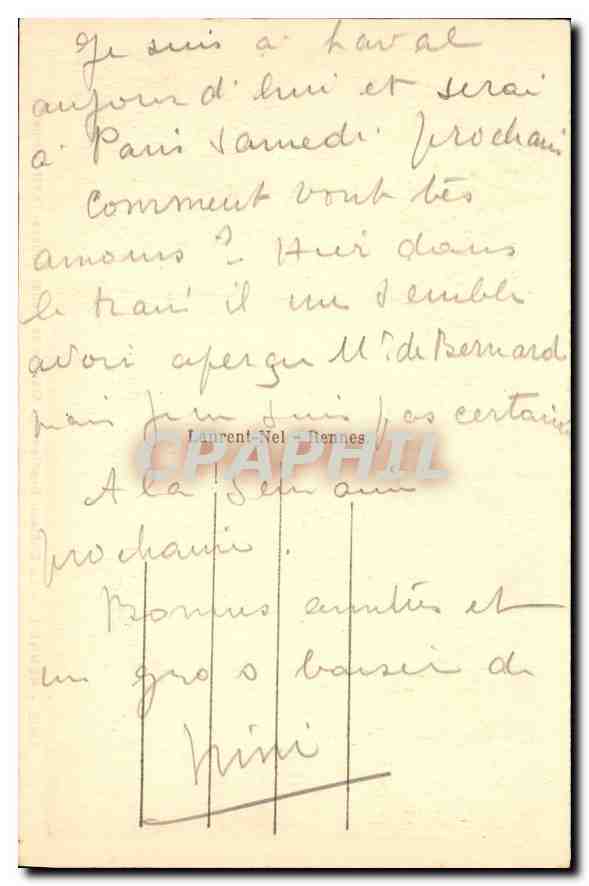 Je suis à Laval
aujourd'hui et serai
à Paris samedi prochain
Comment vont tes
amours ? Hier dans
le train il me semble
avoir aperçu Mr de Bernard
mais je ne suis pas certaine
Laurent-Nel - Rennes.
CPAPHIL
A la semaine
prochaine.
Bonnes amitiés et
un gros baiser de
Nini